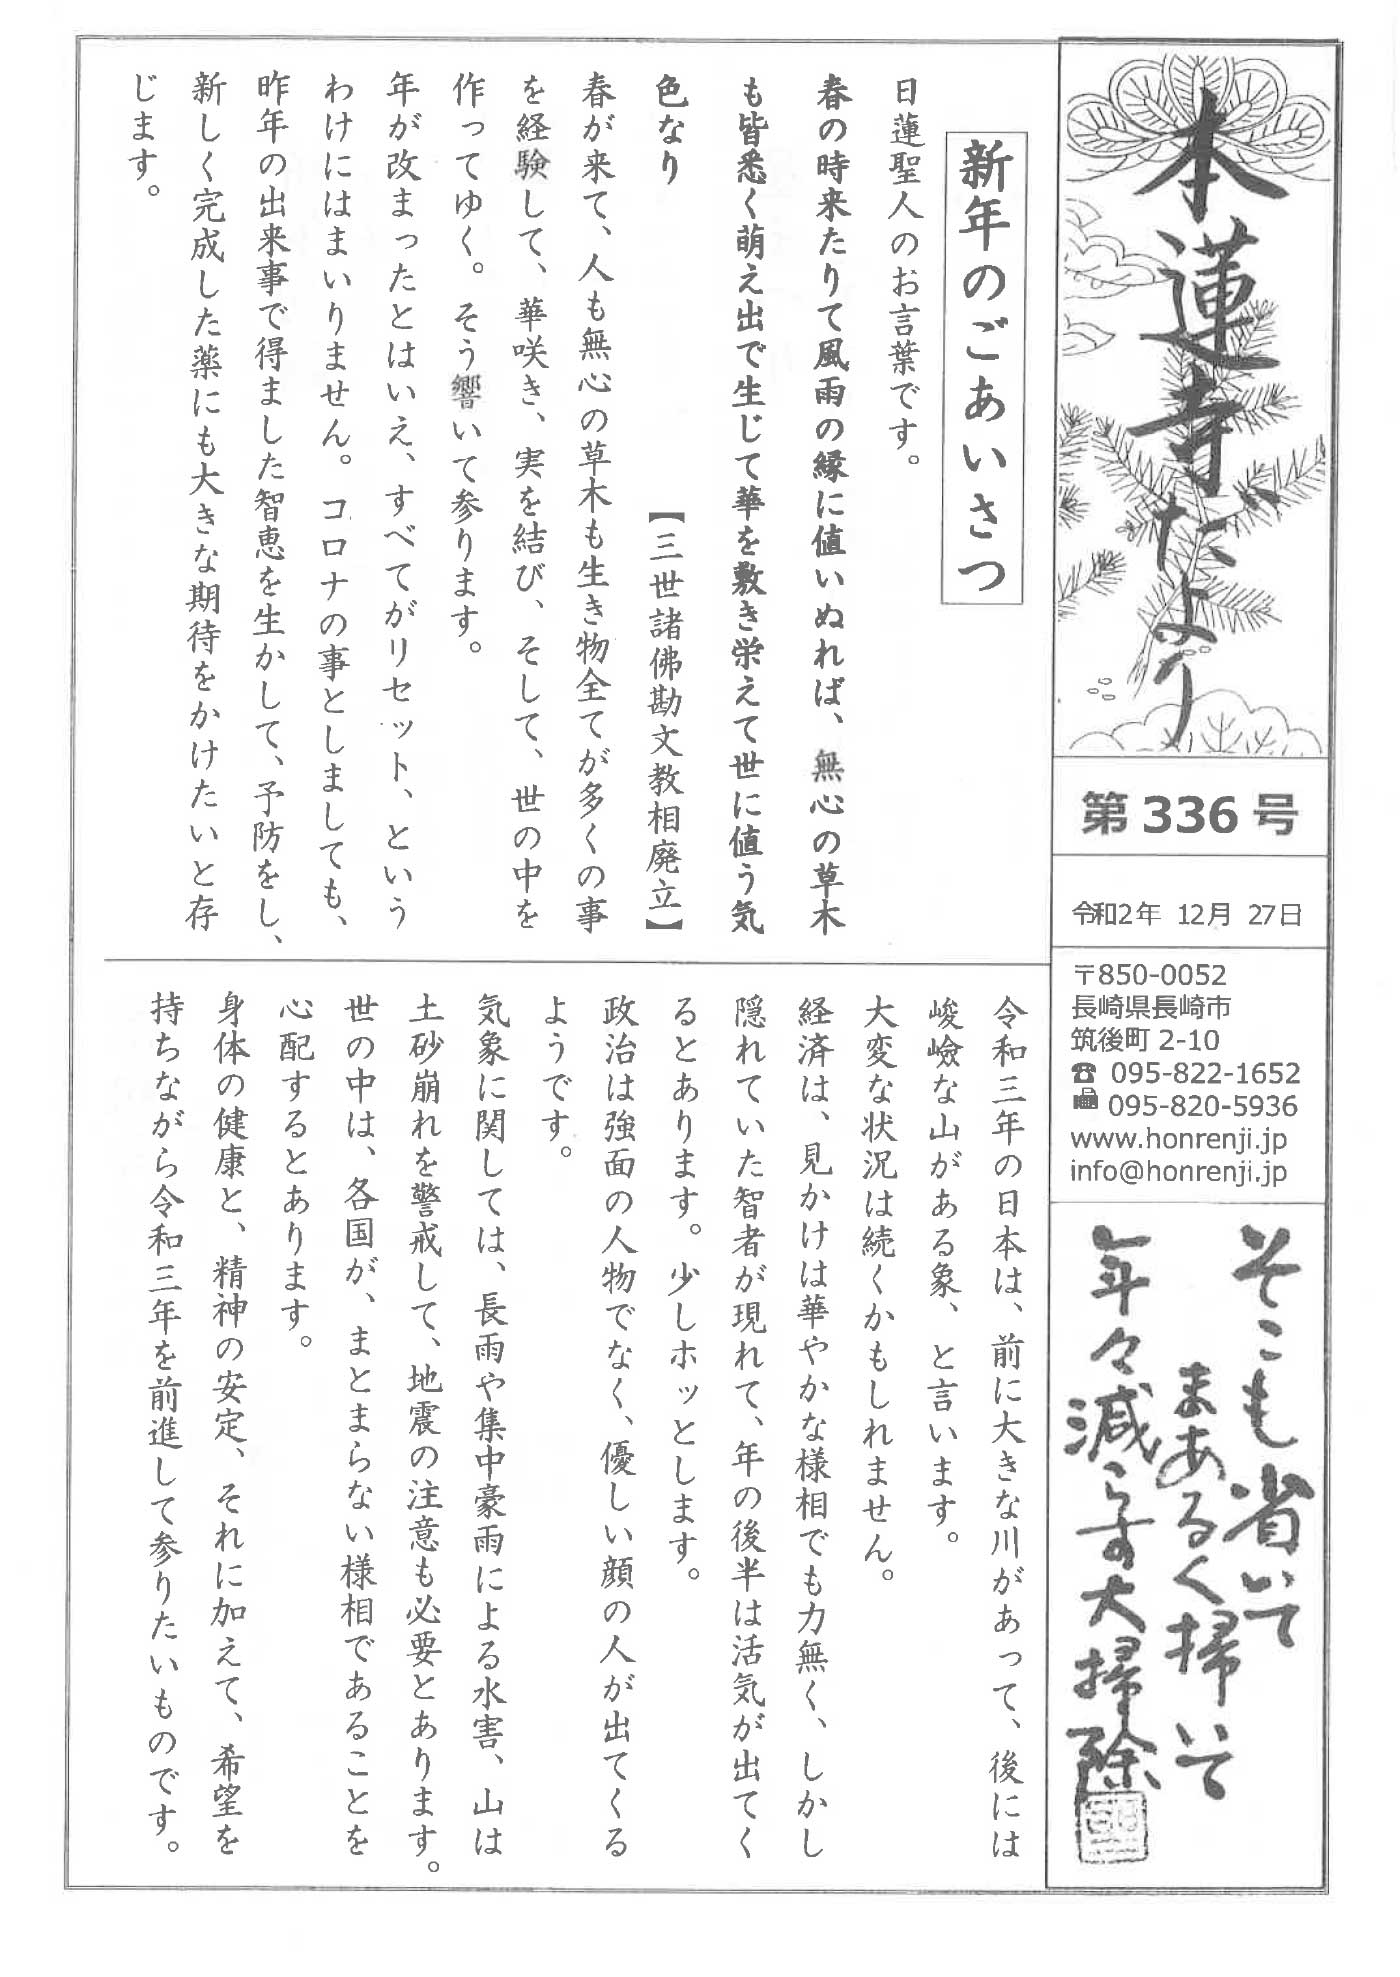 本蓮寺だより
第336号
令和2年 12月 27日
〒850-0052
長崎県長崎市
筑後町 2-10
☎ 095-822-1652
📠 095-820-5936
www.honrenji.jp
info@honrenji.jp
そこも省いて
まあるく掃いて
年々減らす大掃除
新年のごあいさつ
日蓮聖人のお言葉です。
春の時来たりて風雨の縁に値いぬれば、無心の草木
も皆悉く萌え出で生じて華を敷き栄えて世に値う気
色なり
【三世諸佛勘文教相廃立】
春が来て、人も無心の草木も生き物全てが多くの事
を経験して、華咲き、実を結び、そして、世の中を
作ってゆく。そう響いて参ります。
年が改まったとはいえ、すべてがリセット、という
わけにはまいりません。コロナの事としましても、
昨年の出来事で得ました智恵を生かして、予防をし、
新しく完成した薬にも大きな期待をかけたいと存
じます。
令和三年の日本は、前に大きな川があって、後には
峻嶮な山がある象、と言います。
大変な状況は続くかもしれません。
経済は、見かけは華やかな様相でも力無く、しかし
隠れていた智者が現れて、年の後半は活気が出てく
るとあります。少しホッとします。
政治は強面の人物でなく、優しい顔の人が出てくる
ようです。
気象に関しては、長雨や集中豪雨による水害、山は
土砂崩れを警戒して、地震の注意も必要とあります。
世の中は、各国が、まとまらない様相であることを
心配するとあります。
身体の健康と、精神の安定、それに加えて、希望を
持ちながら令和三年を前進して参りたいものです。